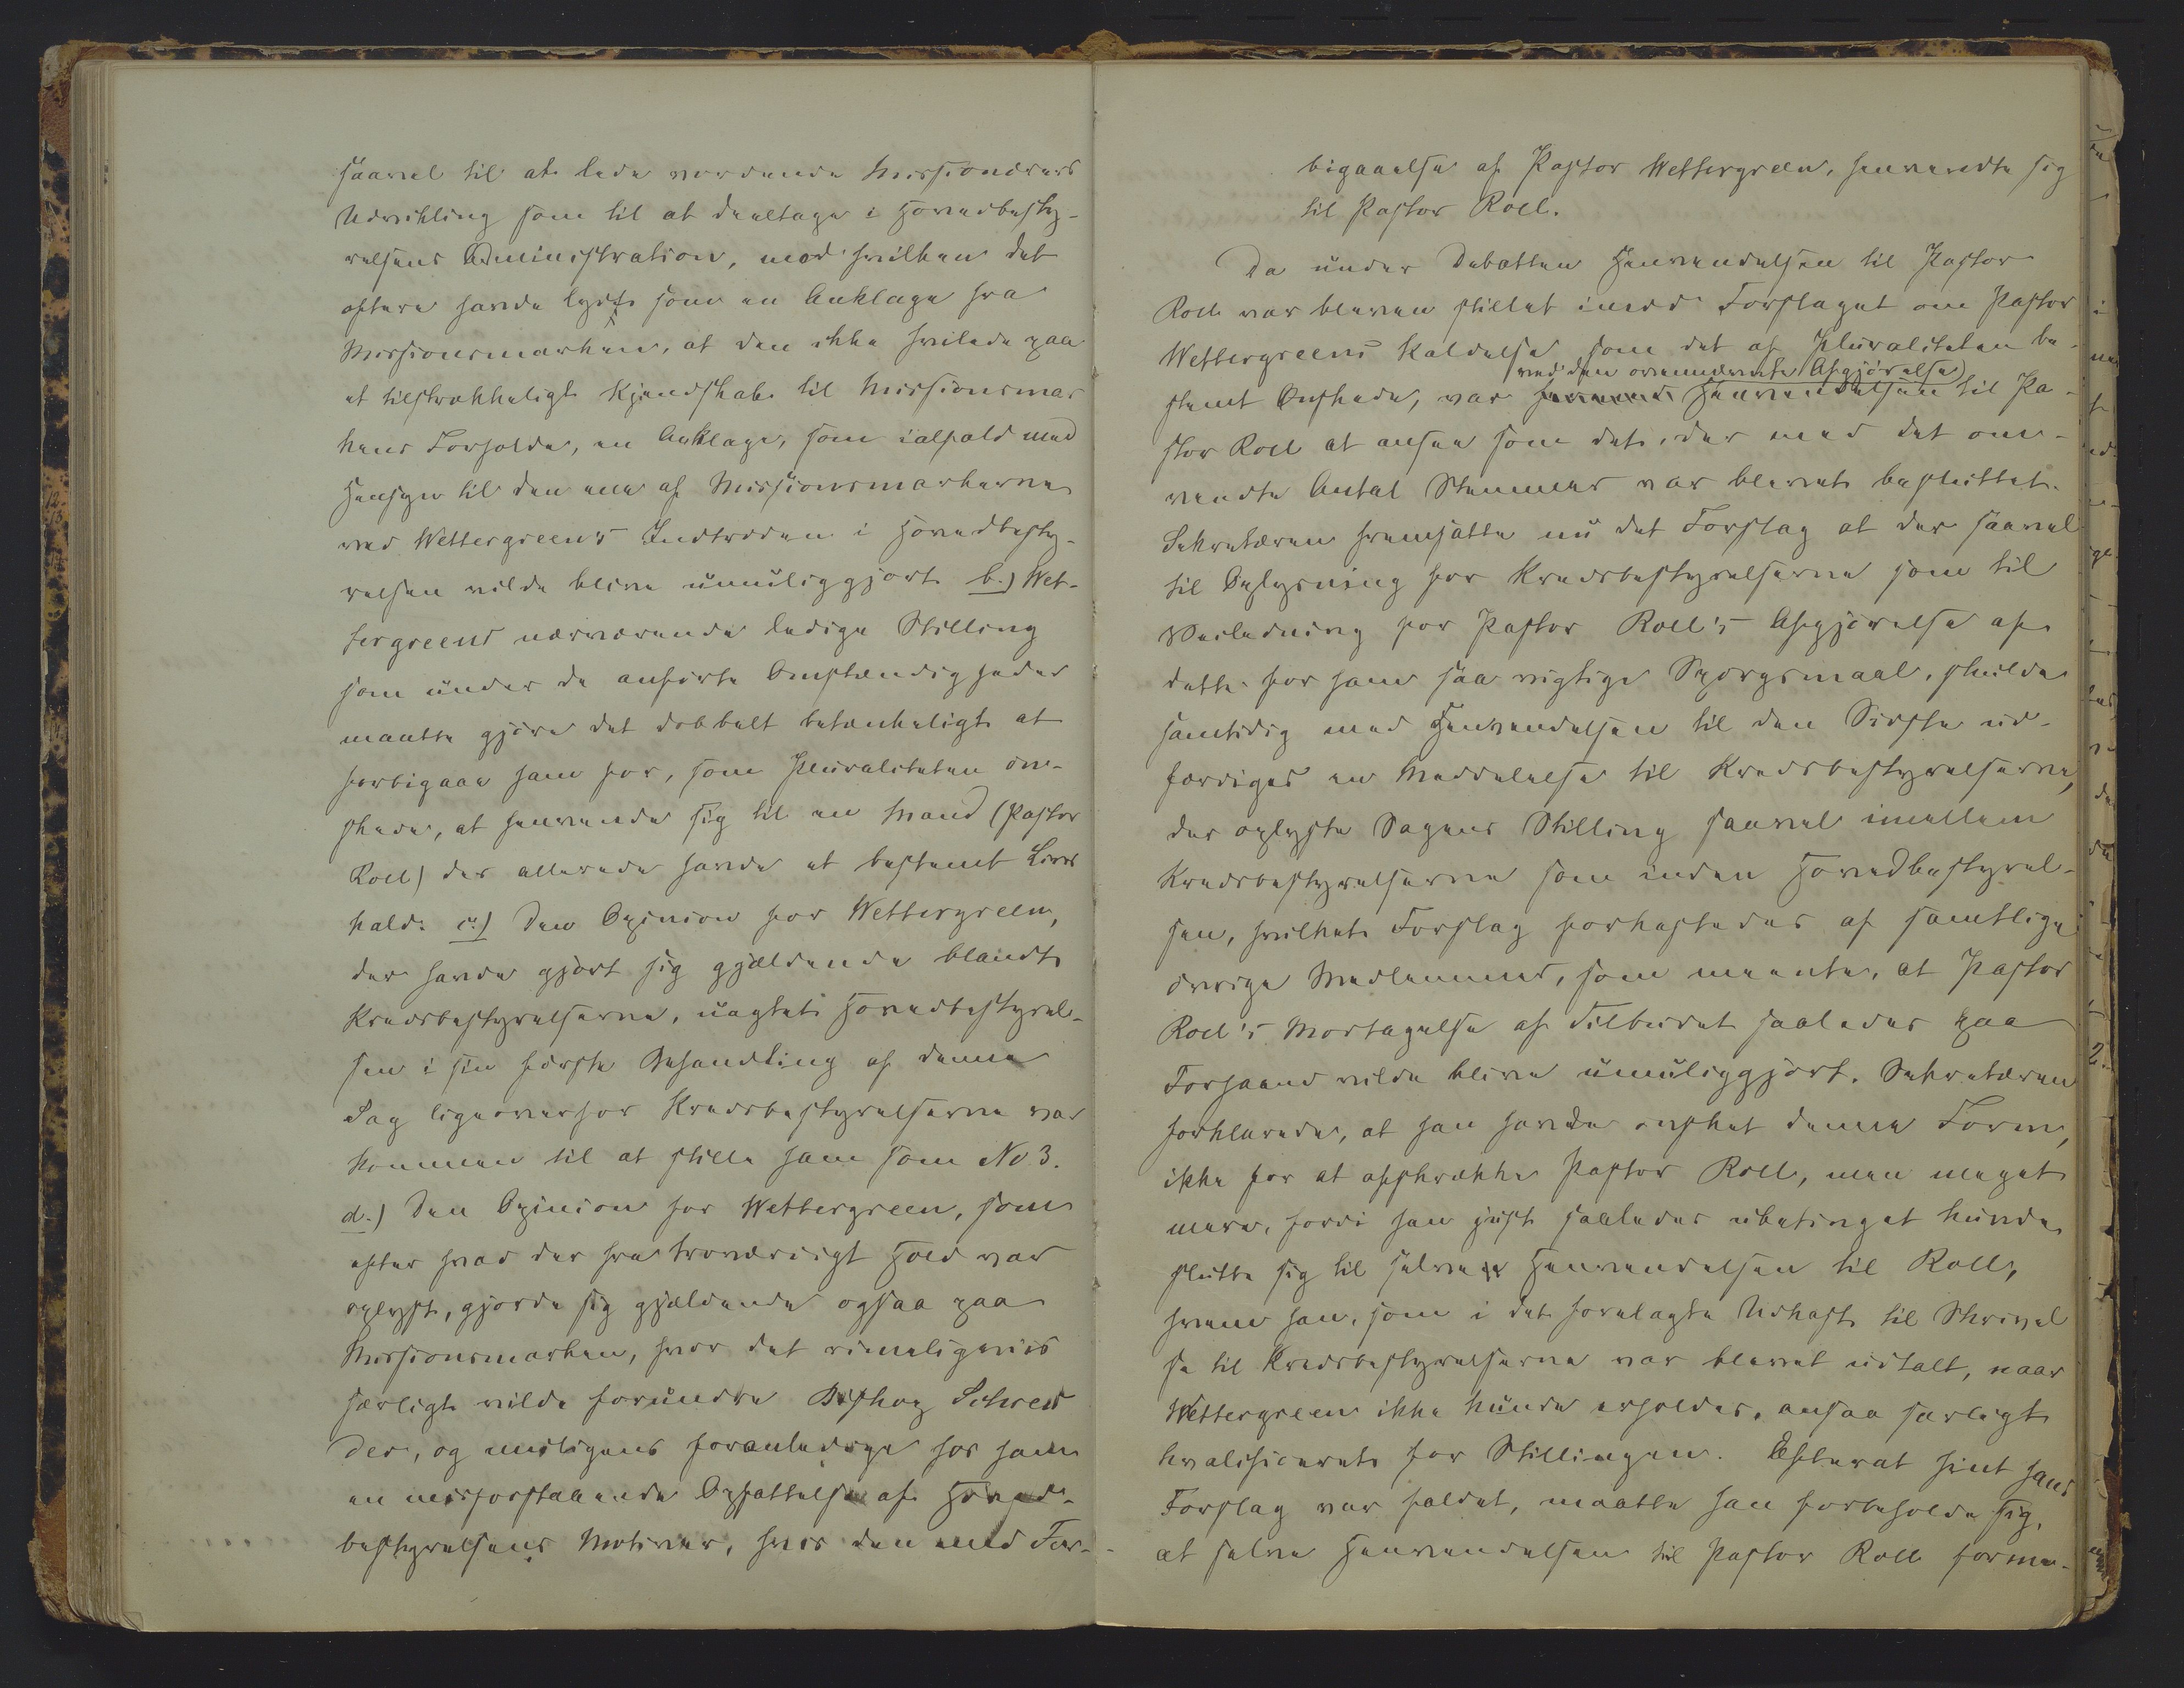 saavel til at lede vordende Missionærers
Udvikling som til at deeltage i Hovedbesty-
relsens Administration, mod hvilken det
oftere havde lydt som en Anklage fra
Missionsmarken, at den ikke hvilede paa
et tilstrækkeligt Kjendskab til Missionsmar
kens Forholde, en Anklage, som ialfald med
Hensyn til den ene af Missionsmarkerne
ved Wettergreen's Indtræden i Hovedbesty-
relsen vilde blive umuliggjort b.) Wet-
tergreens nærværende ledige Stilling
som under de anførte Omstændigheder
maatte gjøre det dobbelt betænkeligt at
forbigaae ham for, som Pluraliteten øn-
skede, at henvende sig til en Mand (Pastor
Roll) der allerede havde et bestemt Livs
kald. c.) Den Opinion for Wettergreen,
der havde gjort sig gjældende blandt
Kredsbestyrelserne, uagtet Hovedbestyrel-
sen i sin første Behandling af denne
Sag ligeoverfor Kredsbestyrelserne var
kommen til at stille ham som No 3.
d.) Den Opinion for Wettergreen, som
efter hvad der fra troværdigt Hold var
oplyst, gjorde sig gjældende ogsaa paa
Missionsmarken, hvor det rimeligviis
særligt vilde forundre Biskop Schreu
der, og muligens foranledige hos ham
en misforstaaende Opfattelse af Hoved-
bestyrelsens Motiver, hvis den med For-
bigaaelse af Pastor Wettergreen, henvendte sig
til Pastor Roll.
Da under Debatten Henvendelsen til Pastor
Roll var bleven stillet imod Forslaget om Pastor
Wettergreens Kaldelse, som det af Pluraliteten be-
ved den ovennævnte Afgjørelse)
stemt Ønskede, var Henvendelsen til Pa-
stor Roll at ansee som det, der med det om-
vendte Antal Stemmer var blevet besluttet.
Sekretæren fremsatte nu det Forslag at der saavel
til Oplysning for Kredsbestyrelserne som til
Veiledning for Pastor Roll's Afgjørelse af
dette for ham saa vigtige Spørgsmaal, skulde
samtidig med Henvendelsen til den Sidste ud-
færdiges en Meddelelse til Kredsbestyrelserne,
der oplyste Sagens Stilling saavel imellem
Kredsbestyrelserne som inden Hovedbestyrel-
sen, hvilket Forslag forkastedes af samtlige
øvrige Medlemmer, som meente, at Pastor
Roll's Modtagelse af Tilbudet saaledes paa
Forhaand vilde blive umuliggjort. Sekretæren
forklarede, at han havde ønsket denne Form,
ikke for at afskrække Pastor Roll, men meget
mere, fordi han just saaledes ubetinget kunde
slutte sig til selve Henvendelsen til Roll,
hvem han, som i det forelagte Udkast til Skrivel
se til Kredsbestyrelserne var blevet udtalt, naar
Wettergreen ikke kunde erholdes, ansaa særligt
kvalificeret for Stillingen. Efterat hint hans
Forslag var faldet, maatte han forbeholde sig,
at selve Henvendelsen til Pastor Roll forme-